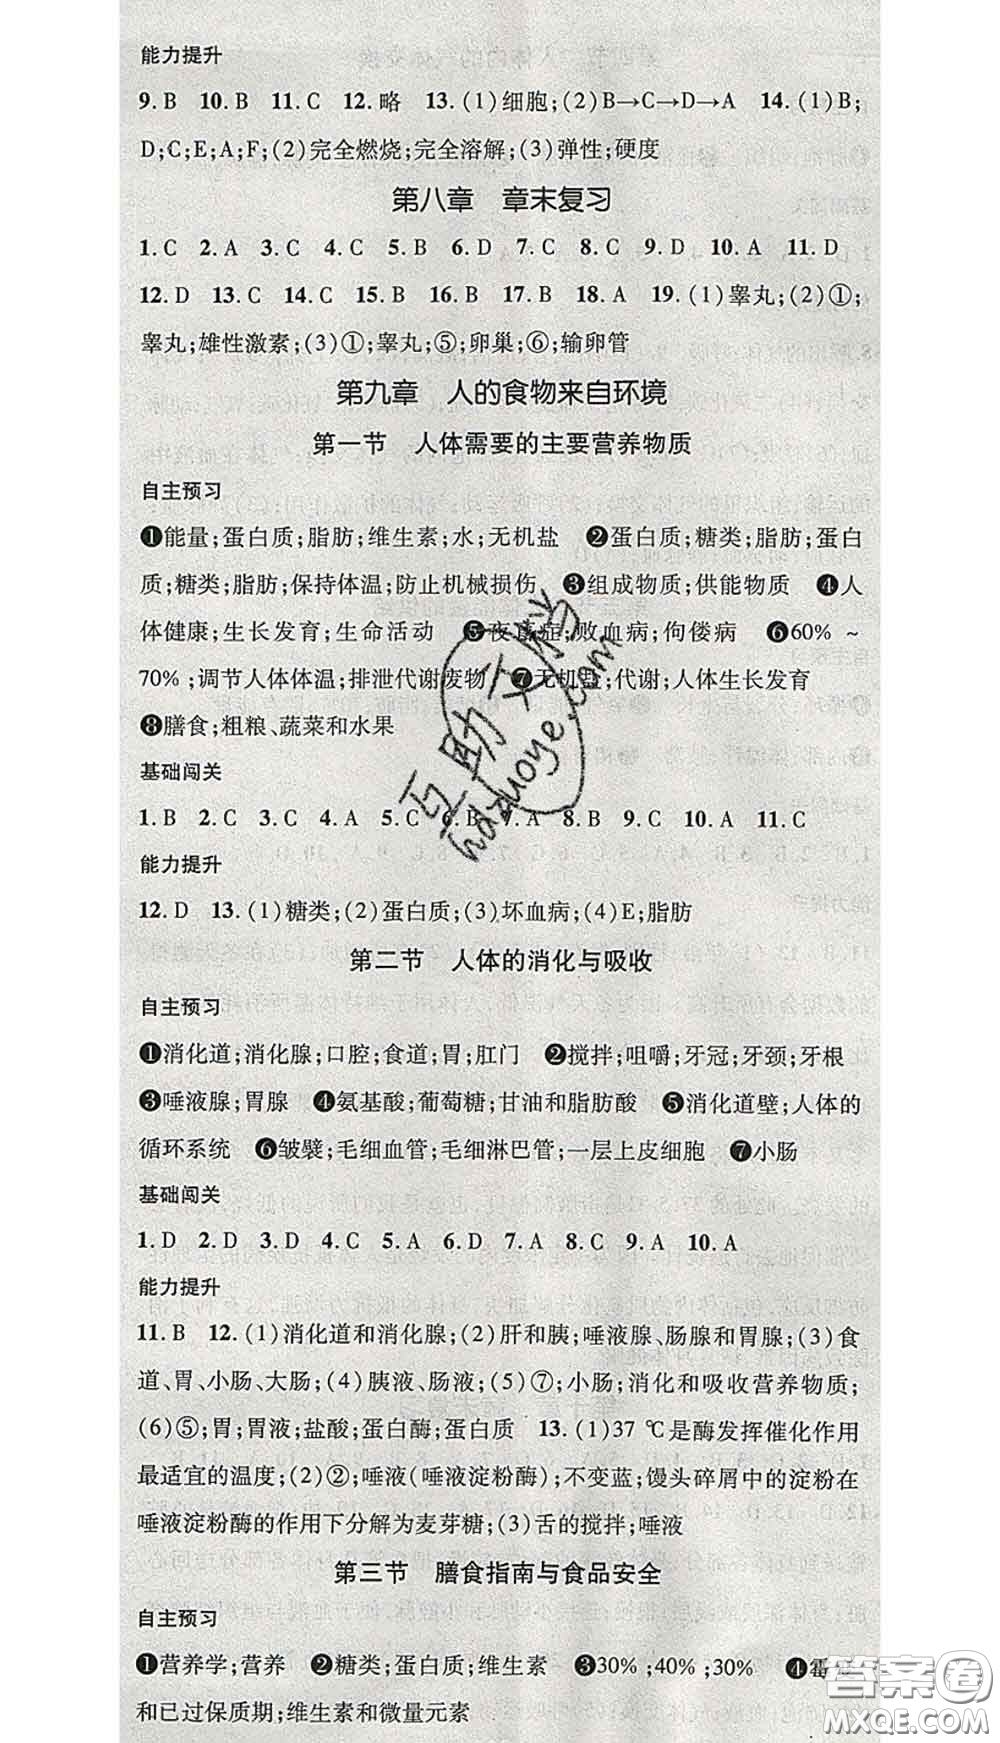 能力提升
9. B 10. B 11. C 12. 略 13. (1)细胞;(2)B→C→D→A 14. (1)B;
D;C;E;A;F;(2)完全燃烧;完全溶解;(3)弹性;硬度
第八章 章末复习
1. C 2. A 3. C 4. C 5. B 6. D 7. C 8. C 9. D 10. A 11. D
12. D 13. C 14. C 15. B 16. B 17. B 18. A 19. (1)睾丸;(2)①;
睾丸;雄性激素;(3)①;睾丸;⑤;卵巢;⑥;输卵管
第九章 人的食物来自环境
第一节 人体需要的主要营养物质
自主预习
❶能量;蛋白质;脂肪;维生素;水;无机盐 ❷蛋白质;糖类;脂肪;蛋白
质;糖类;脂肪;保持体温;防止机械损伤 ❸组成物质;供能物质 ❹人
体健康;生长发育;生命活动 ❺夜盲症;败血病;佝偻病 ❻60% ~
70%;调节人体体温;排泄代谢废物 ❼无机盐;代谢;人体生长发育
❽膳食;粗粮、蔬菜和水果
基础闯关
1. B 2. C 3. C 4. A 5. C 6. B 7. A 8. B 9. C 10. A 11. C
能力提升
12. D 13. (1)糖类;(2)蛋白质;(3)坏血病;(4)E;脂肪
第二节 人体的消化与吸收
自主预习
❶消化道;消化腺;口腔;食道;胃;肛门 ❷搅拌;咀嚼;牙冠;牙颈;牙根
❸唾液腺;胃腺 ❹氨基酸;葡萄糖;甘油和脂肪酸 ❺消化道壁;人体的
循环系统 ❻皱襞;毛细血管;毛细淋巴管;一层上皮细胞 ❼小肠
基础闯关
1. D 2. D 3. D 4. C 5. A 6. D 7. A 8. C 9. A 10. A
能力提升
11. B 12. (1)消化道和消化腺;(2)肝和胰;唾液腺、肠腺和胃腺;(3)食
道、胃、小肠、大肠;(4)胰液、肠液;(5)⑦;小肠;消化和吸收营养物质;
(6)⑤;胃;胃液;盐酸;蛋白酶;蛋白质 13. (1)37 ℃是酶发挥催化作用
最适宜的温度;(2)②;唾液(唾液淀粉酶);不变蓝;馒头碎屑中的淀粉在
唾液淀粉酶的作用下分解为麦芽糖;(3)舌的搅拌;唾液
第三节 膳食指南与食品安全
自主预习
❶营养学;营养 ❷糖类;蛋白质;维生素 ❸30%;40%;30% ❹霉
和已过保质期;维生素和微量元素
互助文档
hdzuoye.com
答案圈
MXQE.COM